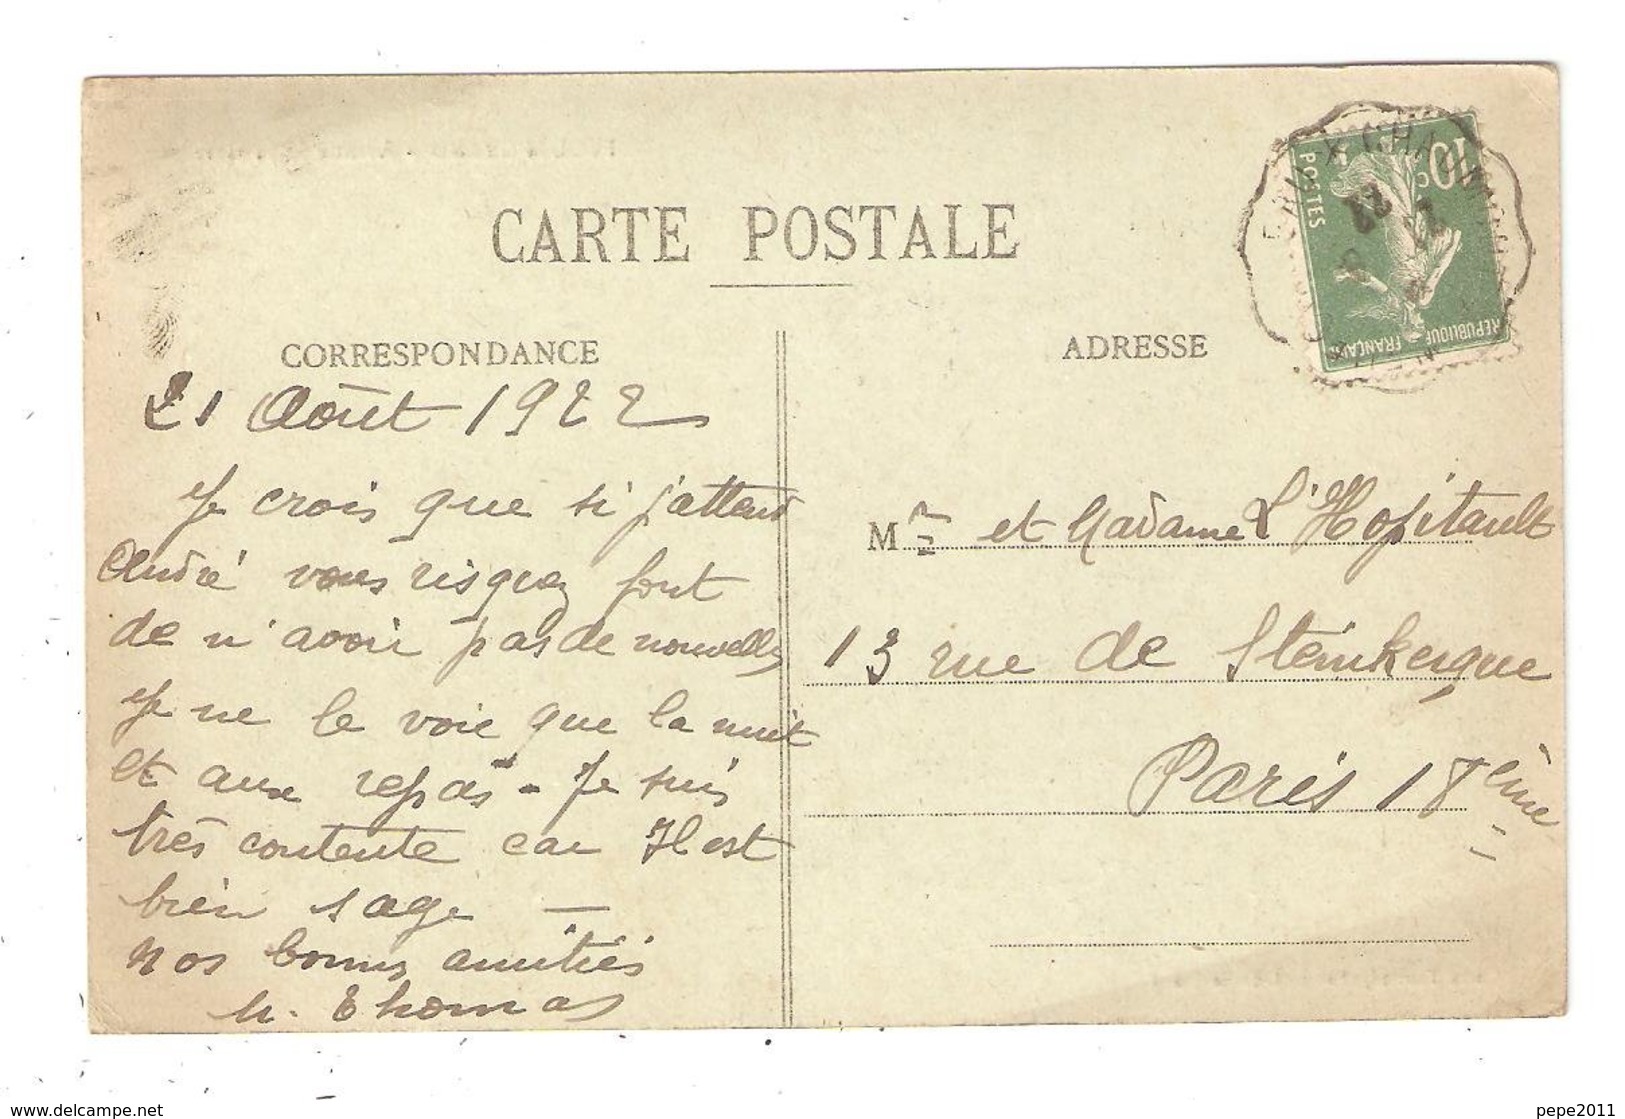 CARTE POSTALE
CORRESPONDANCE
21 Août 1922
Je crois que si j'attend
André vous risquez fort
de n'avoir pas de nouvelles
Je ne le voie que la nuit
et aux repas - Je suis
très contente car Il est
bien sage —
nos bonnes amitiés
h. Thomas
ADRESSE
Mr et Madame L'Hopitault
13 rue de Steinkerque
Paris 18ème
10c
POSTES
REPUBLIQUE
FRANCAISE
21
8
22
www.delcampe.net
pepe2011